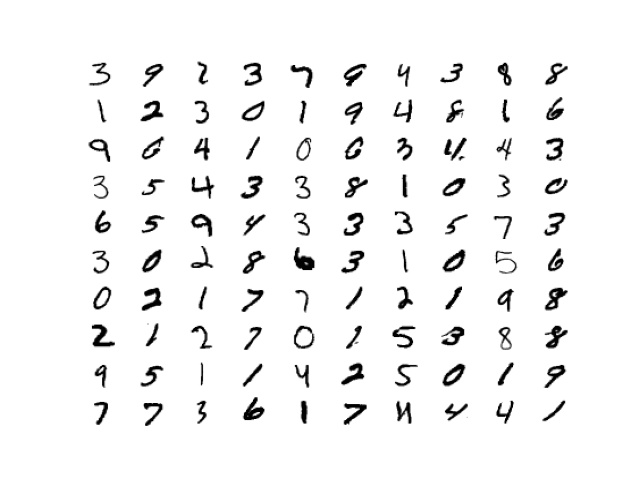 3 9 2 3 7 9 4 3 8 8
1 2 3 0 1 9 4 8 1 6
9 6 4 1 0 6 3 4 4 3
3 5 4 3 3 8 1 0 3 0
6 5 9 4 3 3 3 5 7 3
3 0 2 8 6 3 1 0 5 6
0 2 1 7 7 1 2 1 9 8
2 1 2 7 0 1 5 3 8 8
9 5 1 1 4 2 5 0 1 9
7 7 3 6 1 7 4 4 4 1